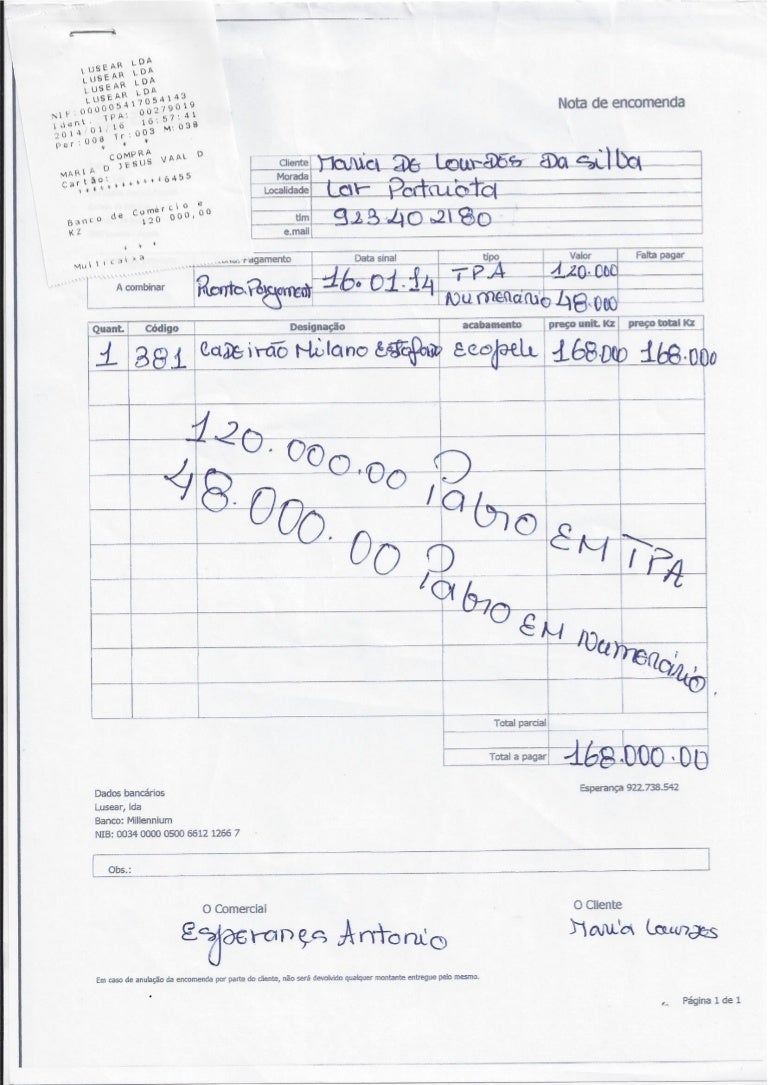 LUSEAR LDA
LUSEAR LDA
LUSEAR LDA
LUSEAR LDA
NIF:000005417054143
Ident. TPA: 00279019
2014/01/16 16:57:41
Per:008 Tr:003 M:038
* * *
COMPRA
MARIA D JESUS VAAL D
Cartão:
************6455
Banco de Comércio e
KZ 120 000,00
* * *
Multicaixa
Nota de encomenda
Cliente Maria De Lourdes Da Silba
Morada
Localidade Lar Patriota
tlm 923402180
e.mail
Pagamento Data sinal tipo Valor Falta pagar
A combinar Pronto Pagament 16.01.14 TPA 120.000
Numerário 48.000
Quant. Código Designação acabamento preço unit. Kz preço total Kz
1 381 Cadeirão Milano Ecopele 168.000 168.000
120.000.00 Pabro EM TPA
48.000.00 Pabro EM Numerário.
Total parcial
Total a pagar 168.000.00
Esperança 922.738.542
Dados bancários
Lusear, lda
Banco: Millennium
NIB: 0034 0000 0500 6612 1266 7
Obs.:
O Comercial O Cliente
Esperança Antonio Maria Lourdes
Em caso de anulação da encomenda por parte do cliente, não será devolvido qualquer montante entregue pelo mesmo.
Página 1 de 1